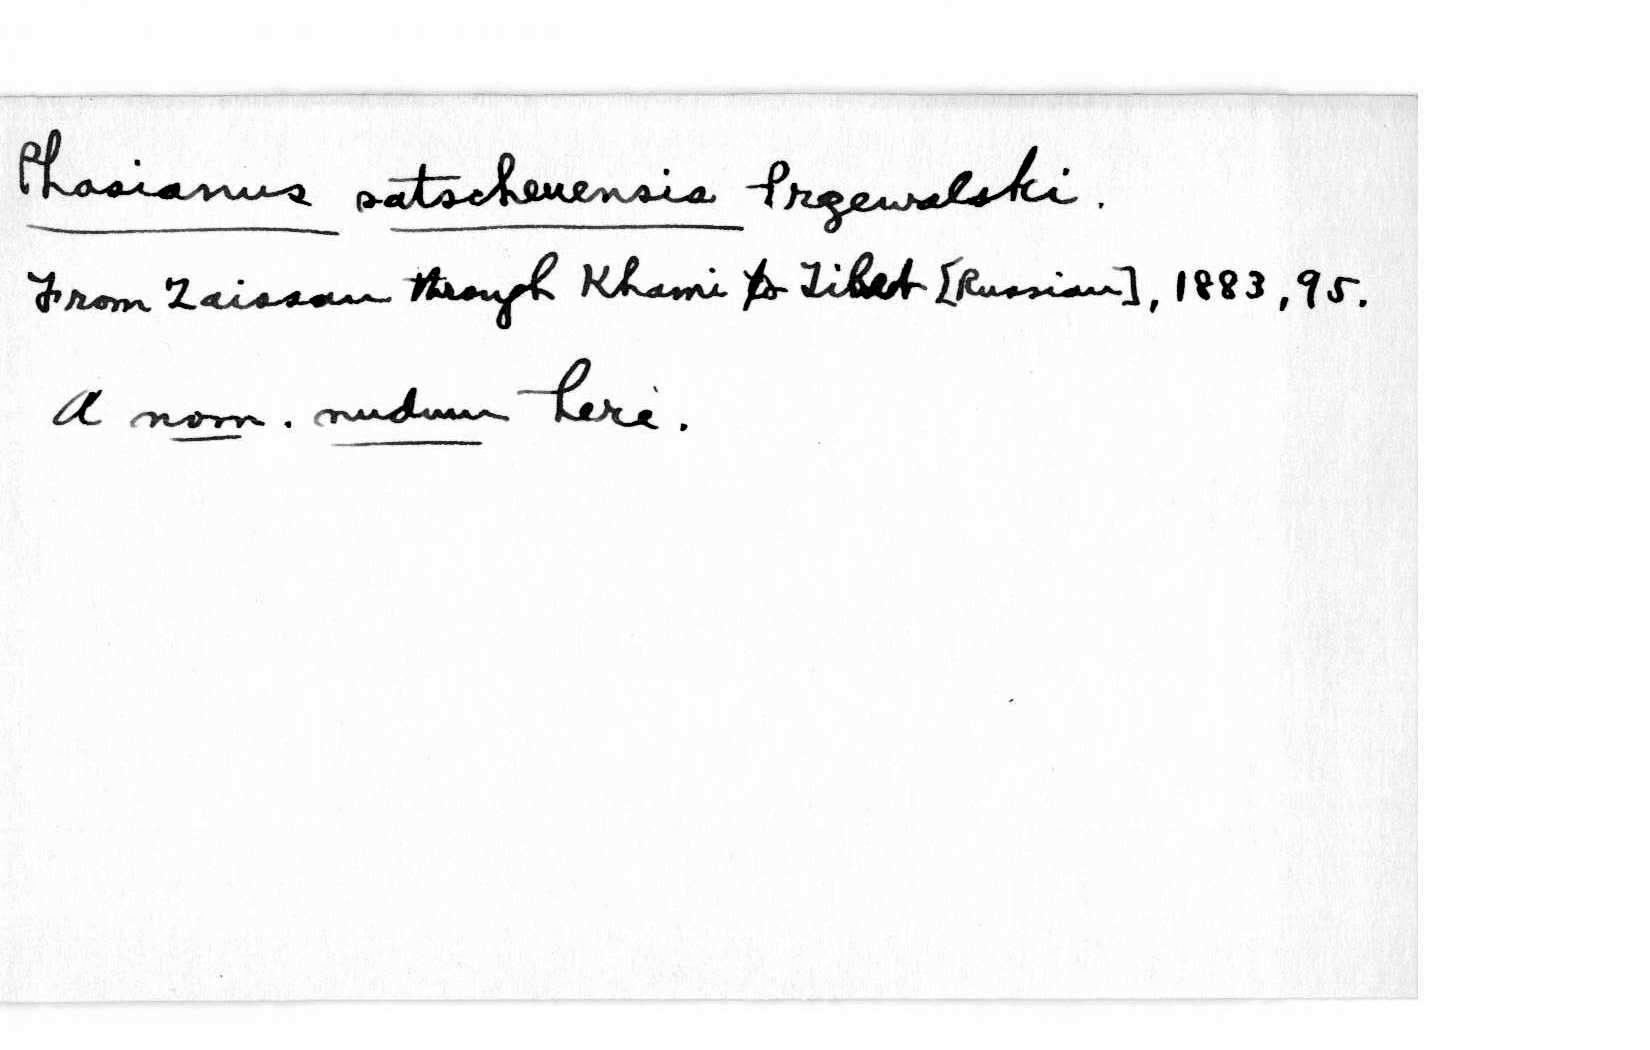 Phasianus satscheuensis Przewalski.
From Zaissan through Khami to Tibet [Russian], 1883, 95.
A nom. nudum here.